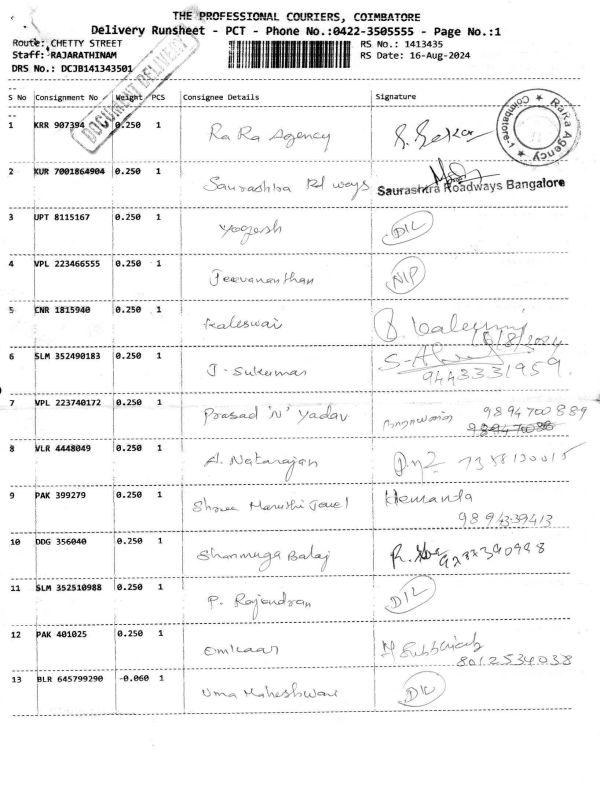 THE PROFESSIONAL COURIERS, COIMBATORE
Delivery Runsheet - PCT - Phone No.:0422-3505555 - Page No.:1
Route: CHETTY STREET
RS No.: 1413435
Staff: RAJARATHINAM
RS Date: 16-Aug-2024
DRS No.: DCJB141343501
DOCUMENT DELIVERY
S No Consignment No Weight PCS Consignee Details Signature
1 KRR 907394 0.250 1 Ra Ra Agency
RaRa Agency ★ Coimbatore-1 ★
2 KUR 7001864904 0.250 1 Saurashtra Rd ways Saurashtra Roadways Bangalore
3 UPT 8115167 0.250 1 Yogesh D/L
4 VPL 223466555 0.250 1 Jeevananthan N/P
5 CNR 1815940 0.250 1 Kaleswari
16/8/2024
6 SLM 352490183 0.250 1 J. Sukumar
9443331959.
7 VPL 223740172 0.250 1 Prasad 'N' Yadav 9894700889
8 VLR 4448049 0.250 1 A. Natarajan 7358130015
9 PAK 399279 0.250 1 Shree Maruthi Jewel Hemanda
9894339413
10 DDG 356040 0.250 1 Shanmuga Balaji
11 SLM 352510988 0.250 1 P. Rajendran D/L
12 PAK 401025 0.250 1 Omkaar
8012534038
13 BLR 645799290 -0.060 1 Uma Maheshwari D/L